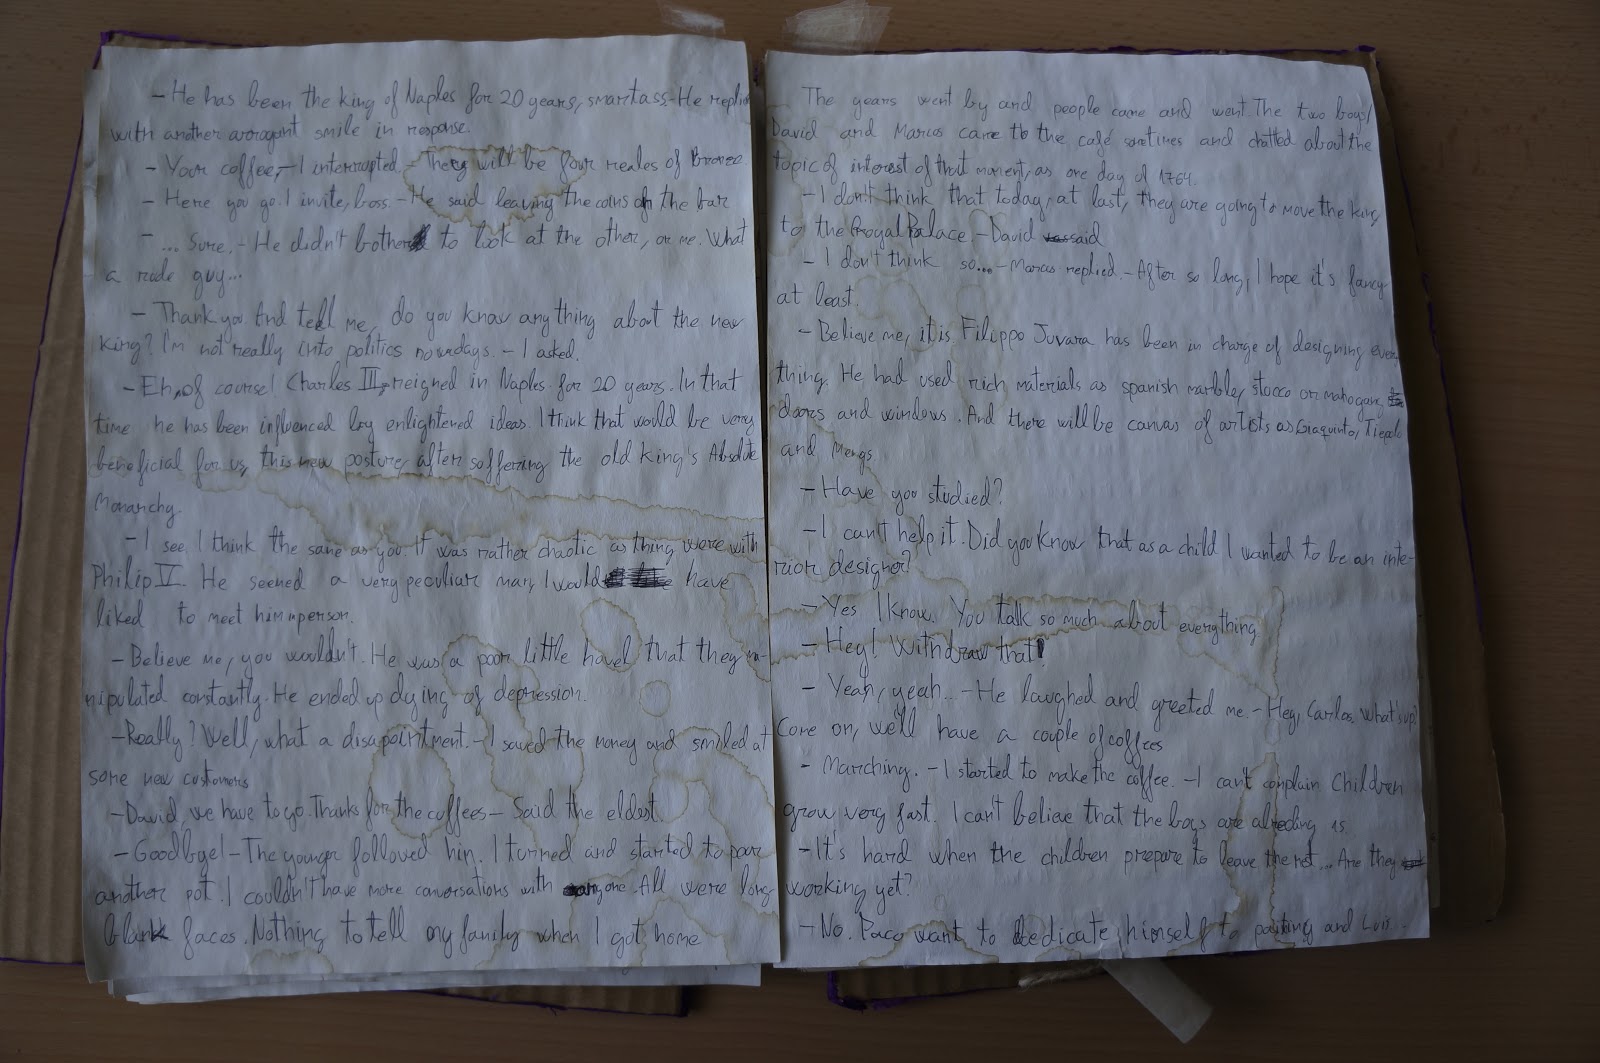 - He has been the king of Naples for 20 years, smartass - He replied
with another arrogant smile in response.
- Your coffee, - I interrupted. - There will be four reales of Bronze
- Here you go. I invite, boss. - He said leaving the coins on the bar
- ... Sure. - He didn't bother to look at the other, or me. What
a rude guy...
- Thank you. And tell me, do you know anything about the new
king? I'm not really into politics nowadays. - I asked.
- Eh, of course! Charles III, reigned in Naples for 20 years. In that
time he has been influenced by enlightened ideas. I think that would be very
beneficial for us, this new posture, after soffering the old king's Absolute
Monarchy.
- I see. I think the same as you. It was rather chaotic as thing were with
Philip V. He seemed a very peculiar man, I would have
liked to meet him in person.
- Believe me, you wouldn't. He was a poor little hovel that they ma-
nipulated constantly. He ended up dying of depression.
- Really? Well, what a disapointment. - I saved the money and smiled at
some new customers
- David, we have to go. Thanks for the coffees - Said the eldest.
- Goodbye! - The younger followed him. I turned and started to pour
another pot. I couldn't have more conversations with anyone. All were long
blank faces. Nothing to tell my family when I got home
The years went by and people came and went. The two boys,
David and Marcos came to the café sometimes and chatted about the
topic of interest of that moment, as one day of 1764.
- I don't think that today, at last, they are going to move the king
to the Royal Palace. - David said
- I don't think so... - Marcos replied. - After so long, I hope it's fancy
at least.
- Believe me, it is. Filippo Juvara has been in charge of designing every
thing. He had used rich materials as spanish marble, stocco or mahogany
doors and windows. And there will be canvas of artists as Giaquinto, Tiepolo
and Mengs.
- Have you studied?
- I can't help it. Did you know that as a child I wanted to be an inte-
rior designer?
- Yes I know. You talk so much about everything
- Hey! Withdraw that!
- Yeah, yeah... - He laughed and greeted me. - Hey, Carlos. What's up?
Come on, we'll have a couple of coffees
- Marching. - I started to make the coffee. - I can't complain. Children
grow very fast. I can't believe that the boys are alreading 15.
- It's hard when the children prepare to leave the net... Are they
working yet?
- No. Paco want to dedicate himself to painting and Luis..